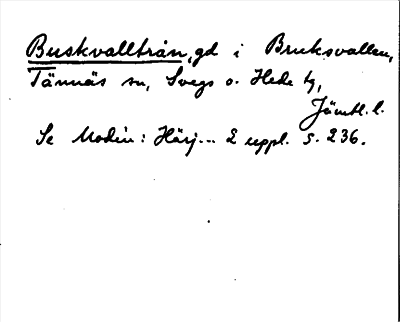 Buskvallbrån, gd i Bruksvallen,
Tännäs sn, Svegs o. Hede tg,
Jämtl. l.
Se Modin: Härj... 2 uppl. s. 236.